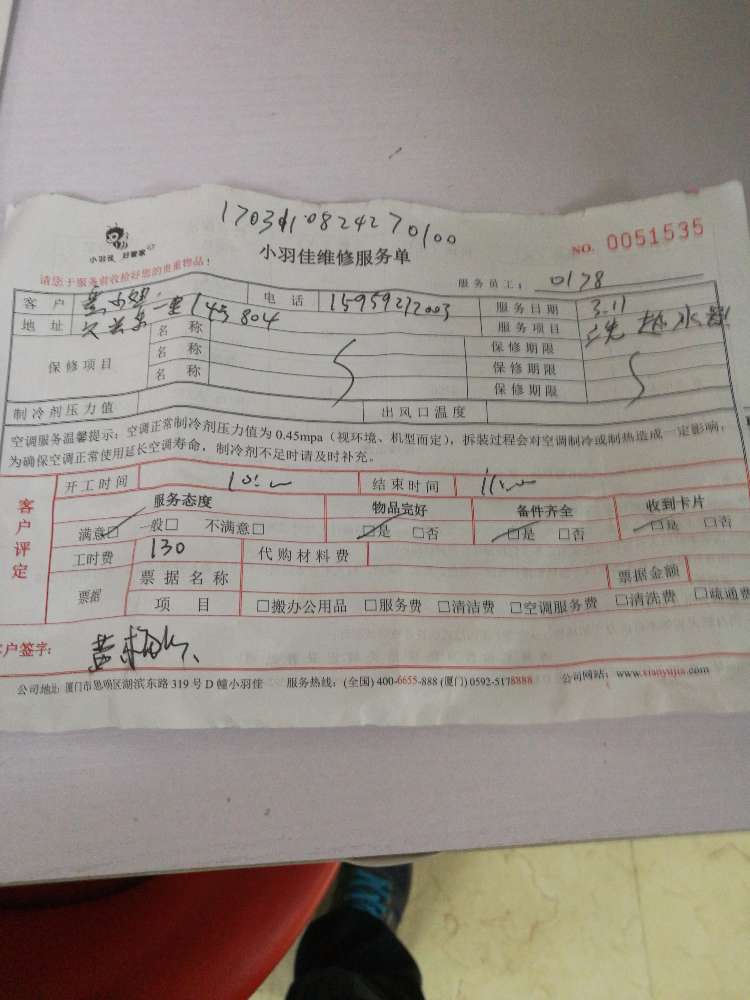 小羽佳 好管家
小羽佳维修服务单
NO. 0051535
请您于服务前收拾好您的贵重物品！
服务员工： 0178
客户 电话 15959212003 服务日期 3.11
地址 143 804 服务项目 洗热水器
保修项目 名称 保修期限
名称 保修期限
名称 保修期限
制冷剂压力值 出风口温度
空调服务温馨提示：空调正常制冷剂压力值为 0.45mpa（视环境、机型而定），拆装过程会对空调制冷或制热造成一定影响，
为确保空调正常使用延长空调寿命，制冷剂不足时请及时补充。
客户评定
开工时间 结束时间
服务态度 物品完好 备件齐全 收到卡片
满意□ 一般□ 不满意□ □是 □否 □是 □否 □是 □否
工时费 130 代购材料费
票据 票据名称 票据金额
项目 □搬办公用品 □服务费 □清洁费 □空调服务费 □清洗费 □疏通费
客户签字：
公司地址: 厦门市思明区湖滨东路 319 号 D 幢小羽佳 服务热线：(全国) 400-6655-888 (厦门) 0592-5178888 公司网站：www.xiaoyujia.com